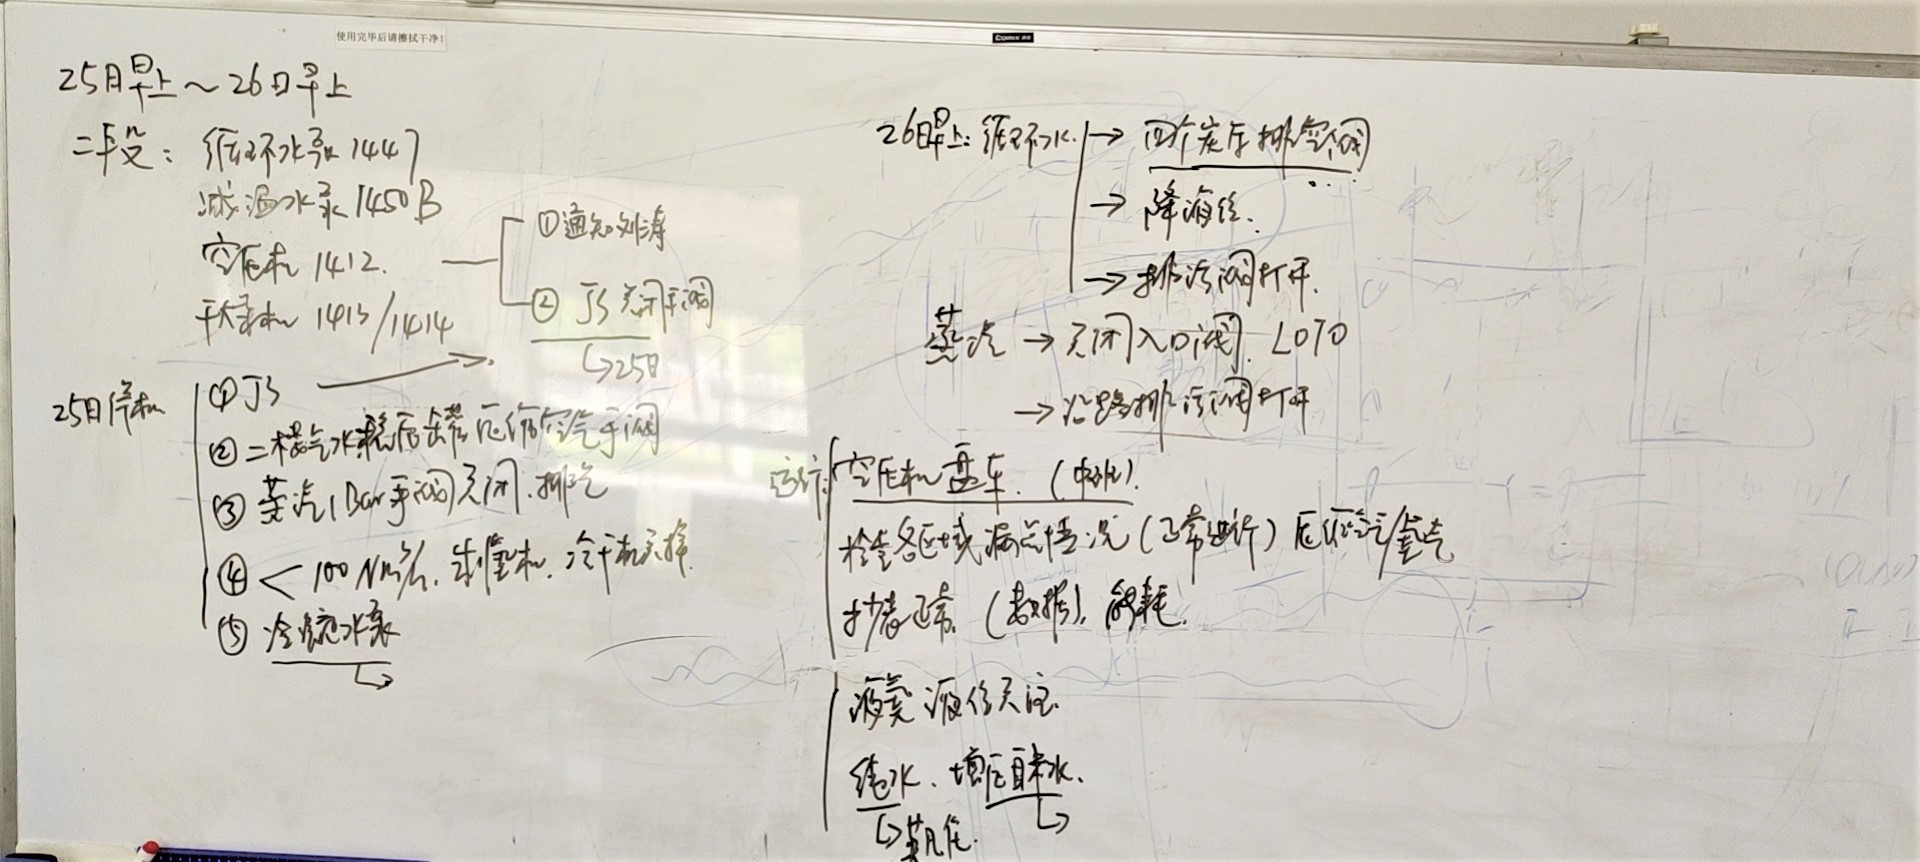 使用完毕后请擦拭干净!
25日早上~26日早上
二段: 循环水泵 1447
减温水泵 1450B
空压机 1412.
干燥机 1413/1414
①通知刘涛
② JS 关闭手阀
↳25日
25日停机
① JS
② 二楼气水稳压罐压缩空气手阀
③ 蒸汽1Bar手阀关闭.排汽
④ < 100 Nm³/h. 制氮机. 冷干机关掉.
⑤ 冷凝水泵
26日早上: 循环水. → 四个炭床排空阀
→ 降液位.
→ 排污阀打开.
蒸汽 → 关闭入口阀. LOTO
→ 沿路排污阀打开
运行: 空压机盘车. (中班).
检查各区域漏点情况 (正常进行) 压缩空气/氮气
抄表正常 (数据). 能耗.
液氮液位关注.
纯水. 增压自来水.